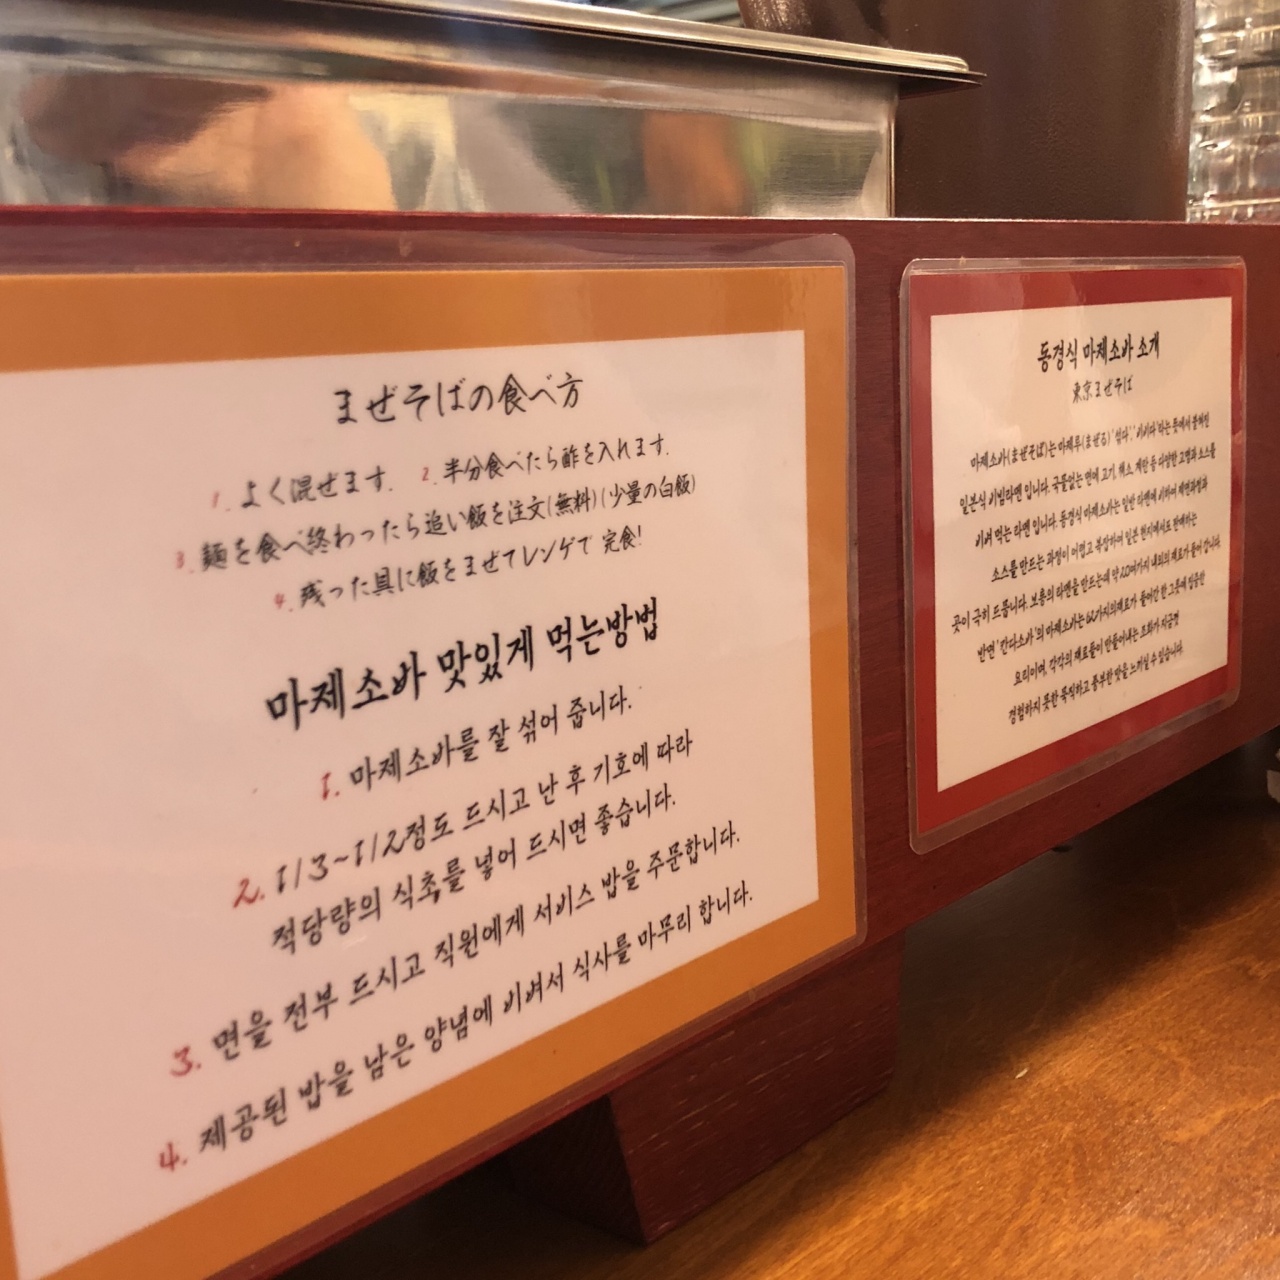 まぜそばの食べ方
1. よく混ぜます. 2. 半分食べたら酢を入れます.
3. 麺を食べ終わったら追い飯を注文(無料)(少量の白飯)
4. 残った具に飯をまぜてレンゲで 完食!
마제소바 맛있게 먹는방법
1. 마제소바를 잘 섞어 줍니다.
2. 1/3~1/2정도 드시고 난 후 기호에 따라
적당량의 식초를 넣어 드시면 좋습니다.
3. 면을 전부 드시고 직원에게 서비스 밥을 주문합니다.
4. 제공된 밥을 남은 양념에 비벼서 식사를 마무리 합니다.
동경식 마제소바 소개
東京まぜそば
마제소바(まぜそば)는 마제루(まぜる) '섞다', '비비다'라는 뜻에서 붙혀진
일본식 비빔라멘 입니다. 국물없는 면에 고기, 채소, 계란 등 다양한 고명과 소스를
비벼 먹는 라멘 입니다. 동경식 마제소바는 일반 라멘에 비하여 제면과정과
소스를 만드는 과정이 어렵고 복잡하여 일본 현지에서도 판매하는
곳이 극히 드뭅니다. 보통의 라멘을 만드는데 약 20여가지 내외의 재료가 들어 갑니다.
반면 '칸다소바'의 마제소바는 62가지의재료가 들어간 한 그릇에 집중한
요리이며, 각각의 재료들이 만들어내는 조화가 지금껏
경험하지 못한 묵직하고 풍부한 맛을 느끼실 수 있습니다.